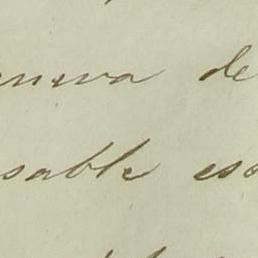 nueva de
sable es